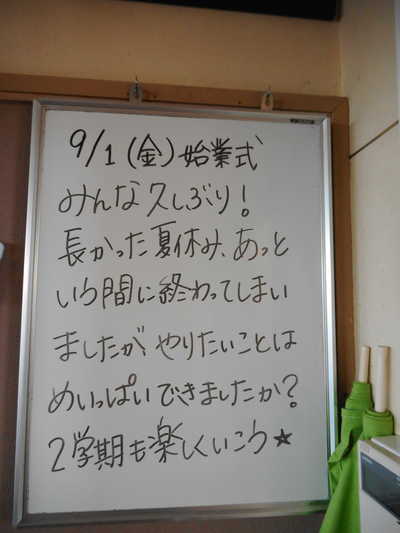 9/1(金)始業式
みんな久しぶり!
長かった夏休み、あっと
いう間に終わってしまい
ましたが、やりたいことは
めいっぱいできましたか?
2学期も楽しくいこう★